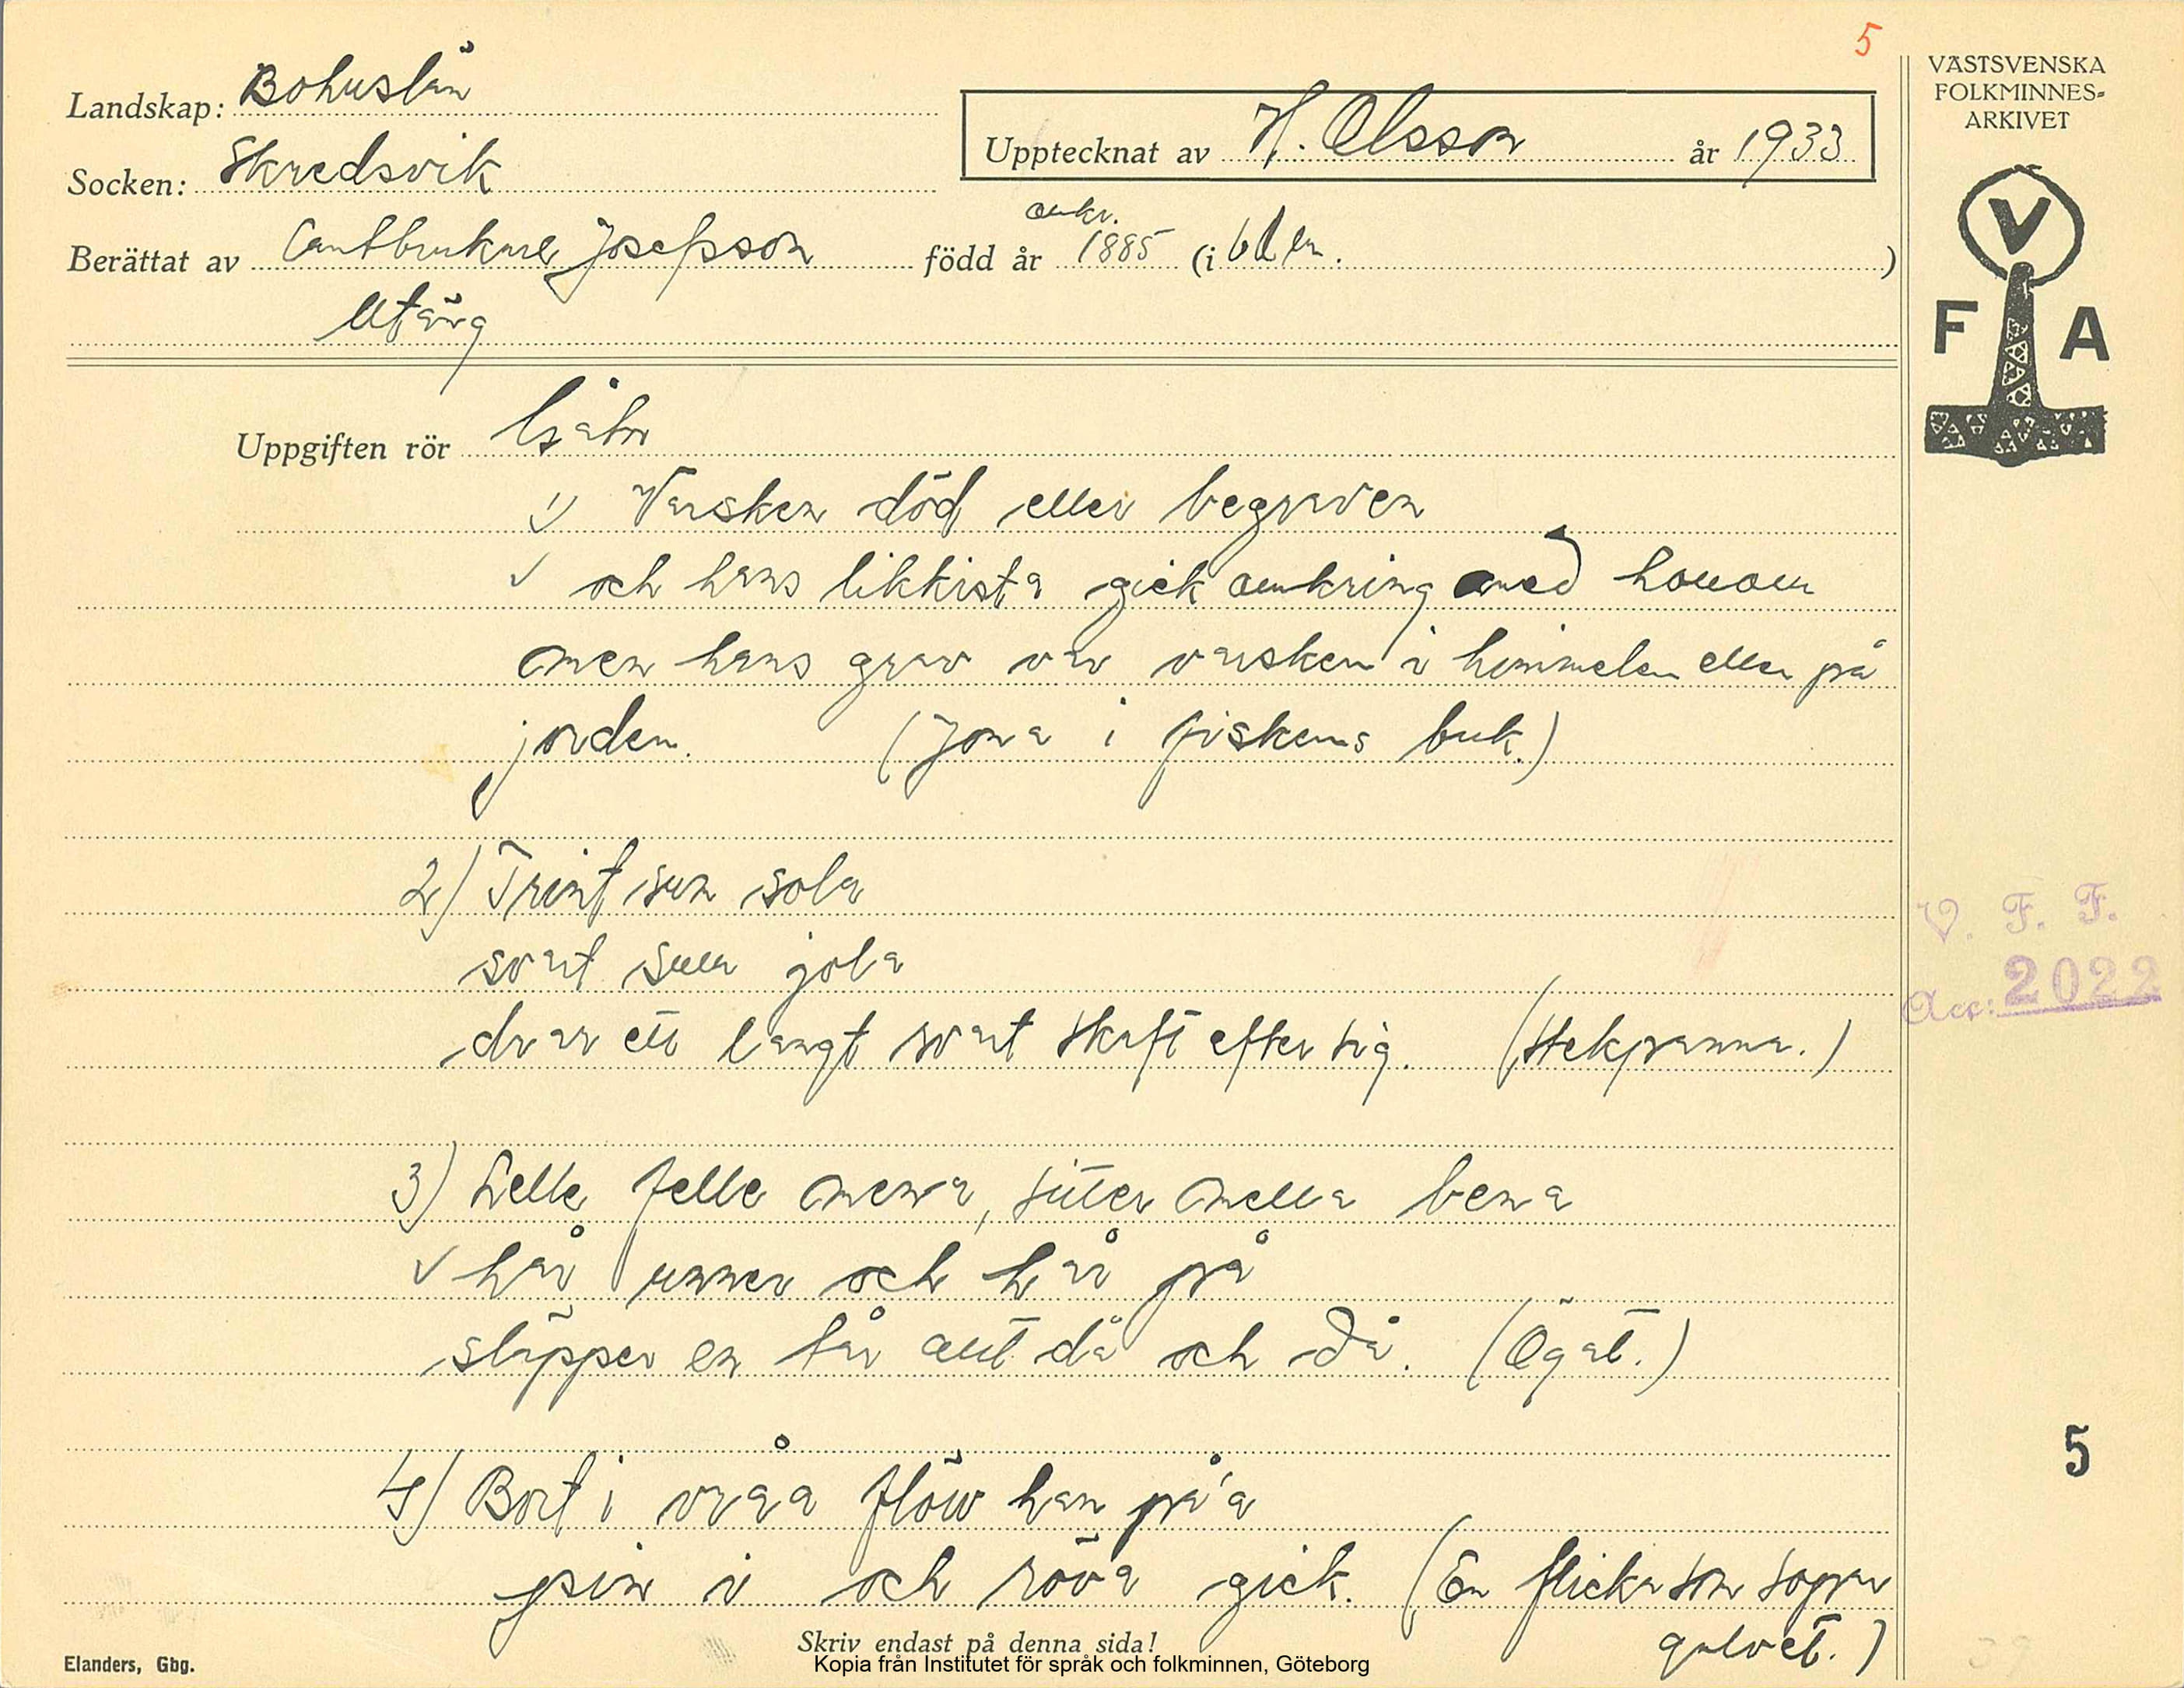 5
Landskap: Bohuslän
Socken: Skredsvik
Upptecknat av H. Olsson år 1933
Berättat av Lantbrukare Josefsson född år omkr. 1885 (i
Utäng
VÄSTSVENSKA
FOLKMINNES-
ARKIVET
V
F A
Uppgiften rör Gåtor
1) Varsken död eller begraven
och hans likkista gick omkring med honom
men hans grav var varsken i himmelen eller på
jorden. (Jona i fiskens buk.)
2) Trint sun sola
svart sum jola
drar ett langt svart skaft efter sig. (Stekpanna.)
3) Lelle felle mena, sitter mella bena
hår unner och hår på
släpper en tår ått då och då. (Ögat.)
4) Bort i vråa flöw han på'a
pin i och röva gick. (En flicka som sopar
golvet.)
V. F. F.
Acc: 2022
5
Skriv endast på denna sida!
Elanders, Gbg.
Kopia från Institutet för språk och folkminnen, Göteborg